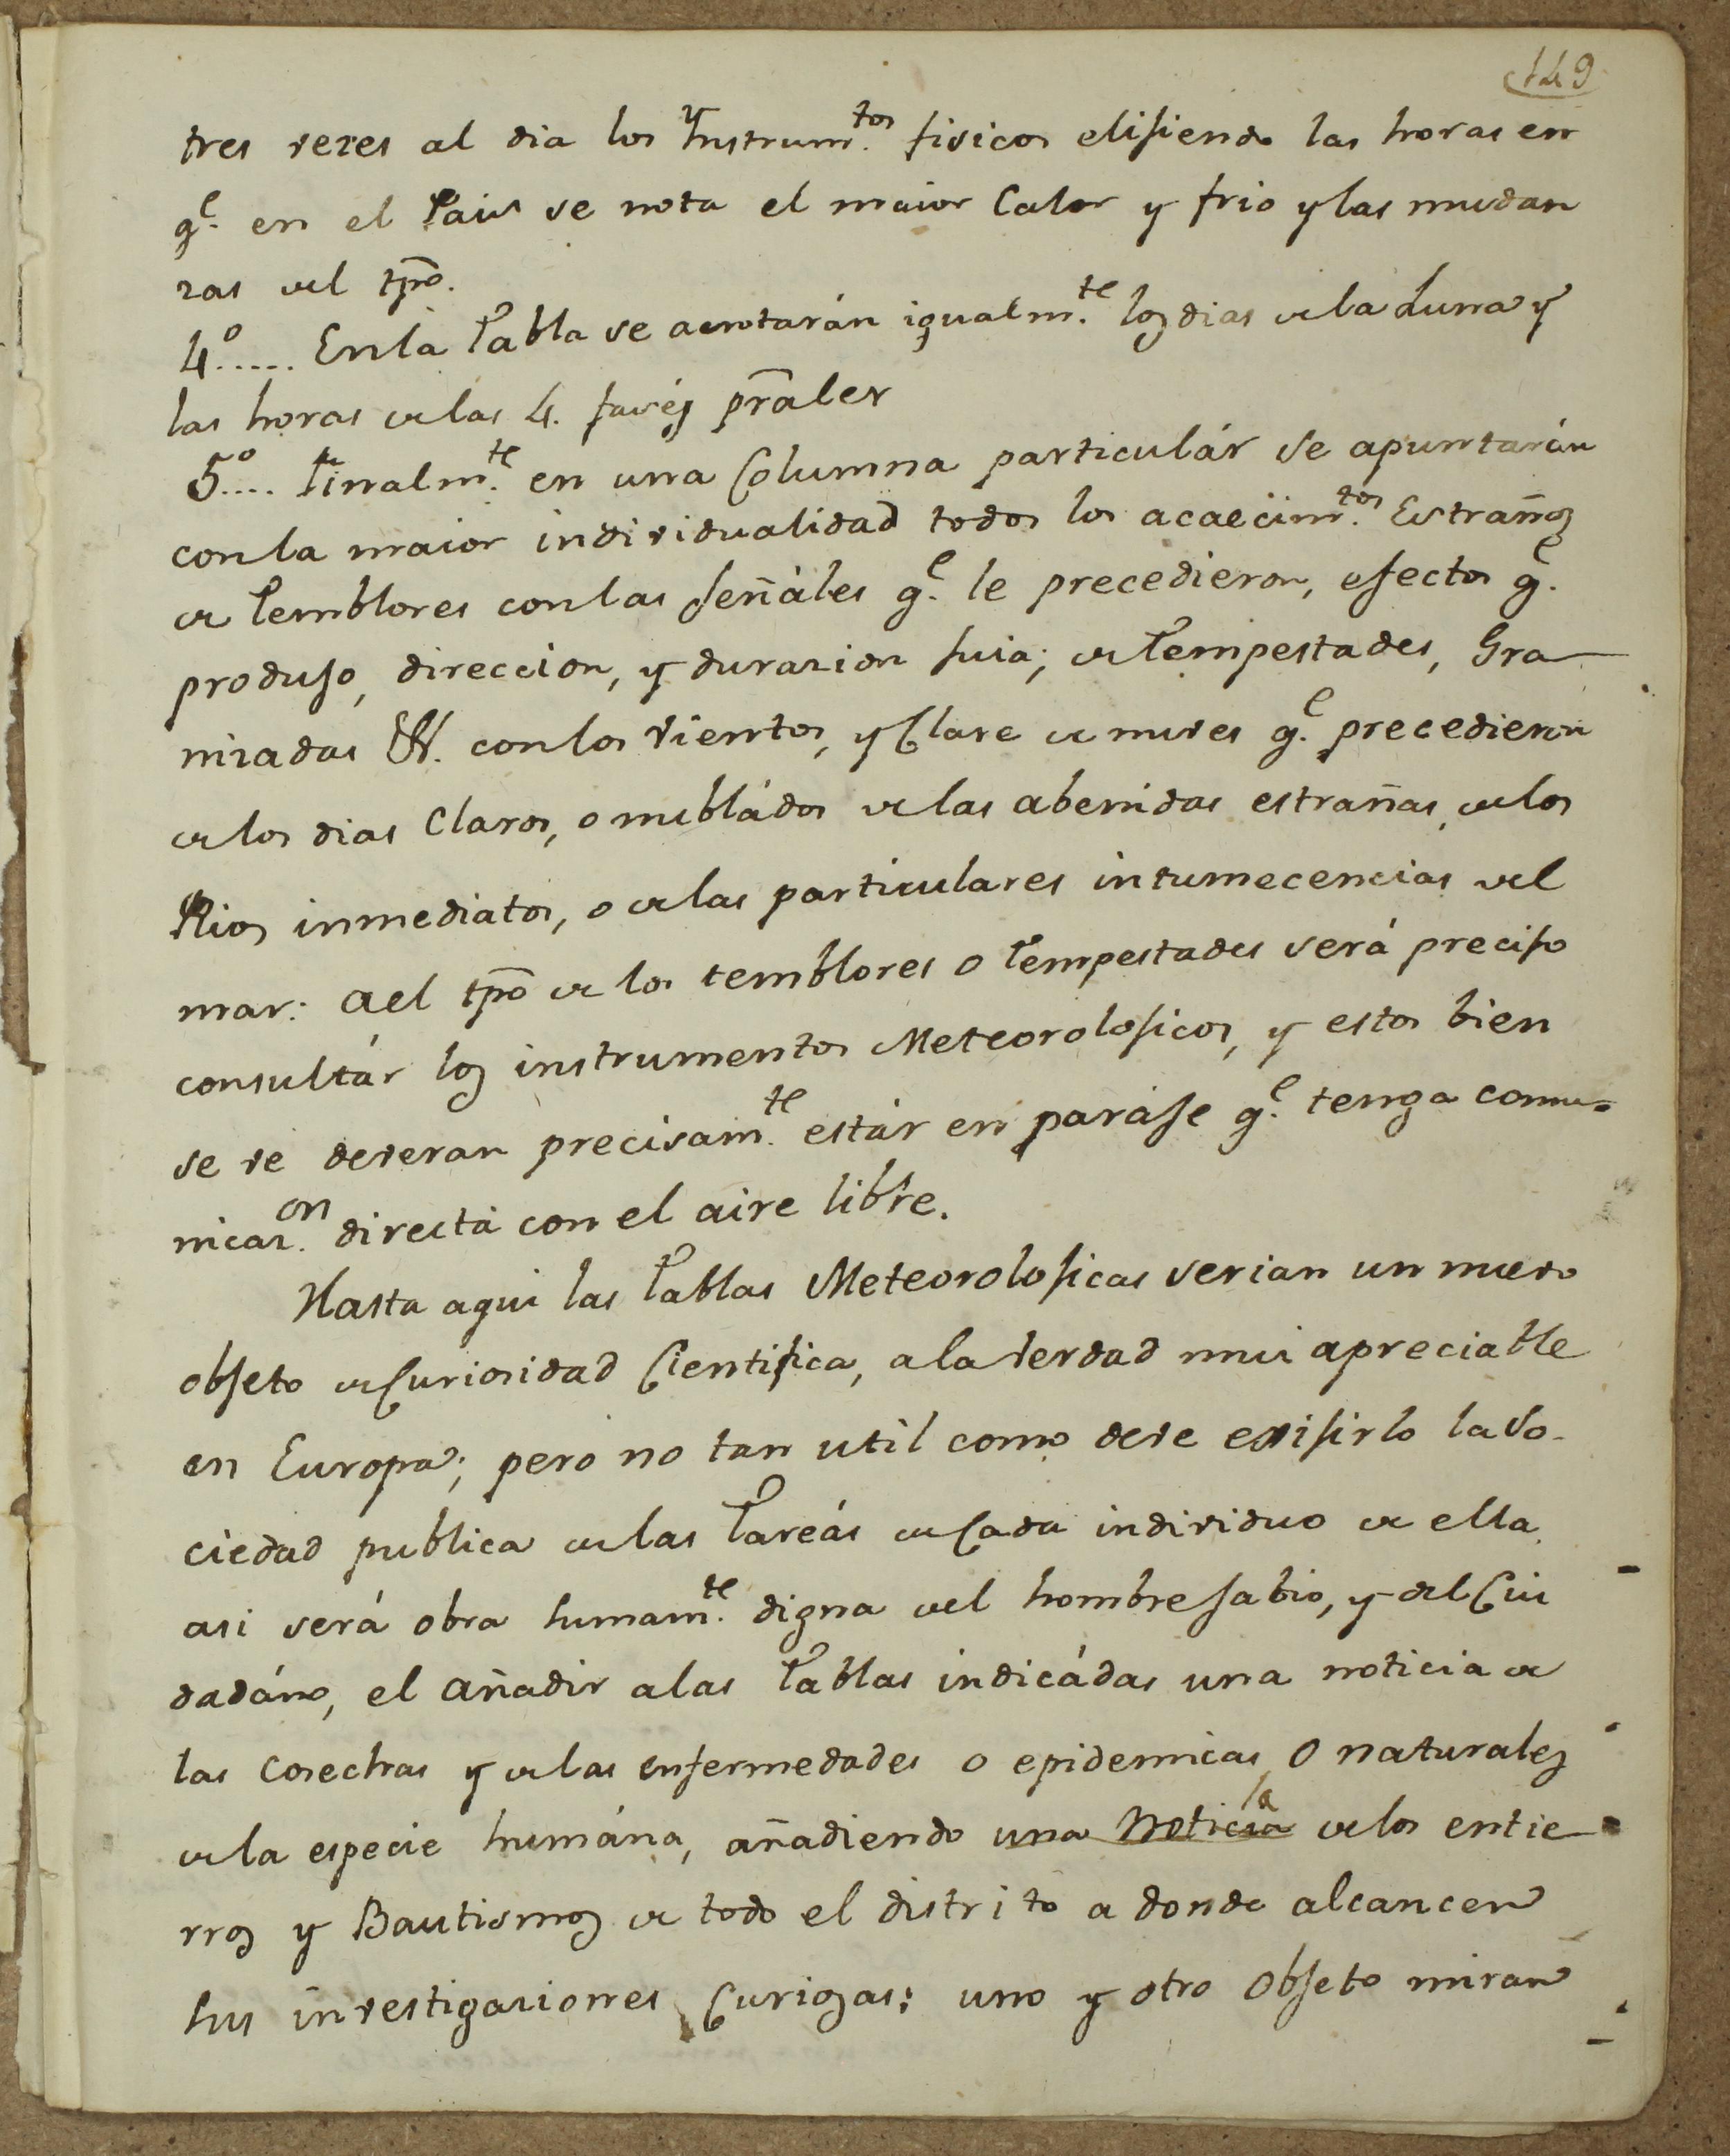 149
tres vezes al dia los Ynstrum.tos fisicos elijiendo las horas en
q.e en el Pais se nota el maior Calor y frio y las mudan
zas del tpõ.
4.º..... En la Tabla se acnotarán igualm.te los dias de la Luna y
las horas de las 4. fasés prãles
5.º.... Finalm.te en una Columna particulár se apuntarán
con la maior individualidad todos los acaecim.tos Estraños
de Temblores con las señáles q.e le precedieron, efectos q.e
produjo, direccion, y durazion suia; de Tempestades, Gra
nizadas &. con los vientos, y Clase de nuves q.e precedieron
de los dias Claros, o nubládos de las abenidas estrañas, de los
Rios inmediatos, o de las particulares intumecencias del
mar: Ael tpõ de los temblores o Tempestades será preciso
consultár los instrumentos Meteorolojicos, y estos bien
se ve deveran precisam.te estár en paraje q.e tenga comu=
nicaz.on directa con el aire libre.
Hasta aqui las Tablas Meteorolojicas serian un mero
objeto de Curiosidad Cientifica, a la verdad mui apreciable
en Europa; pero no tan util como deve exijirlo la So-
ciedad publica de las Tareás de Cada individuo de ella
asi será obra sumam.te digna del hombre sabio, y del Ciu
dadáno, el añadir a las Tablas indicádas una noticia de
las Cosechas y de las enfermedades o epidemicas, o naturales
de la especie humána, añadiendo una Noticia la de los entie
rros y Bautismos de todo el distrito a donde alcancen
sus investigaziones Curiosas: uno y otro objeto miran